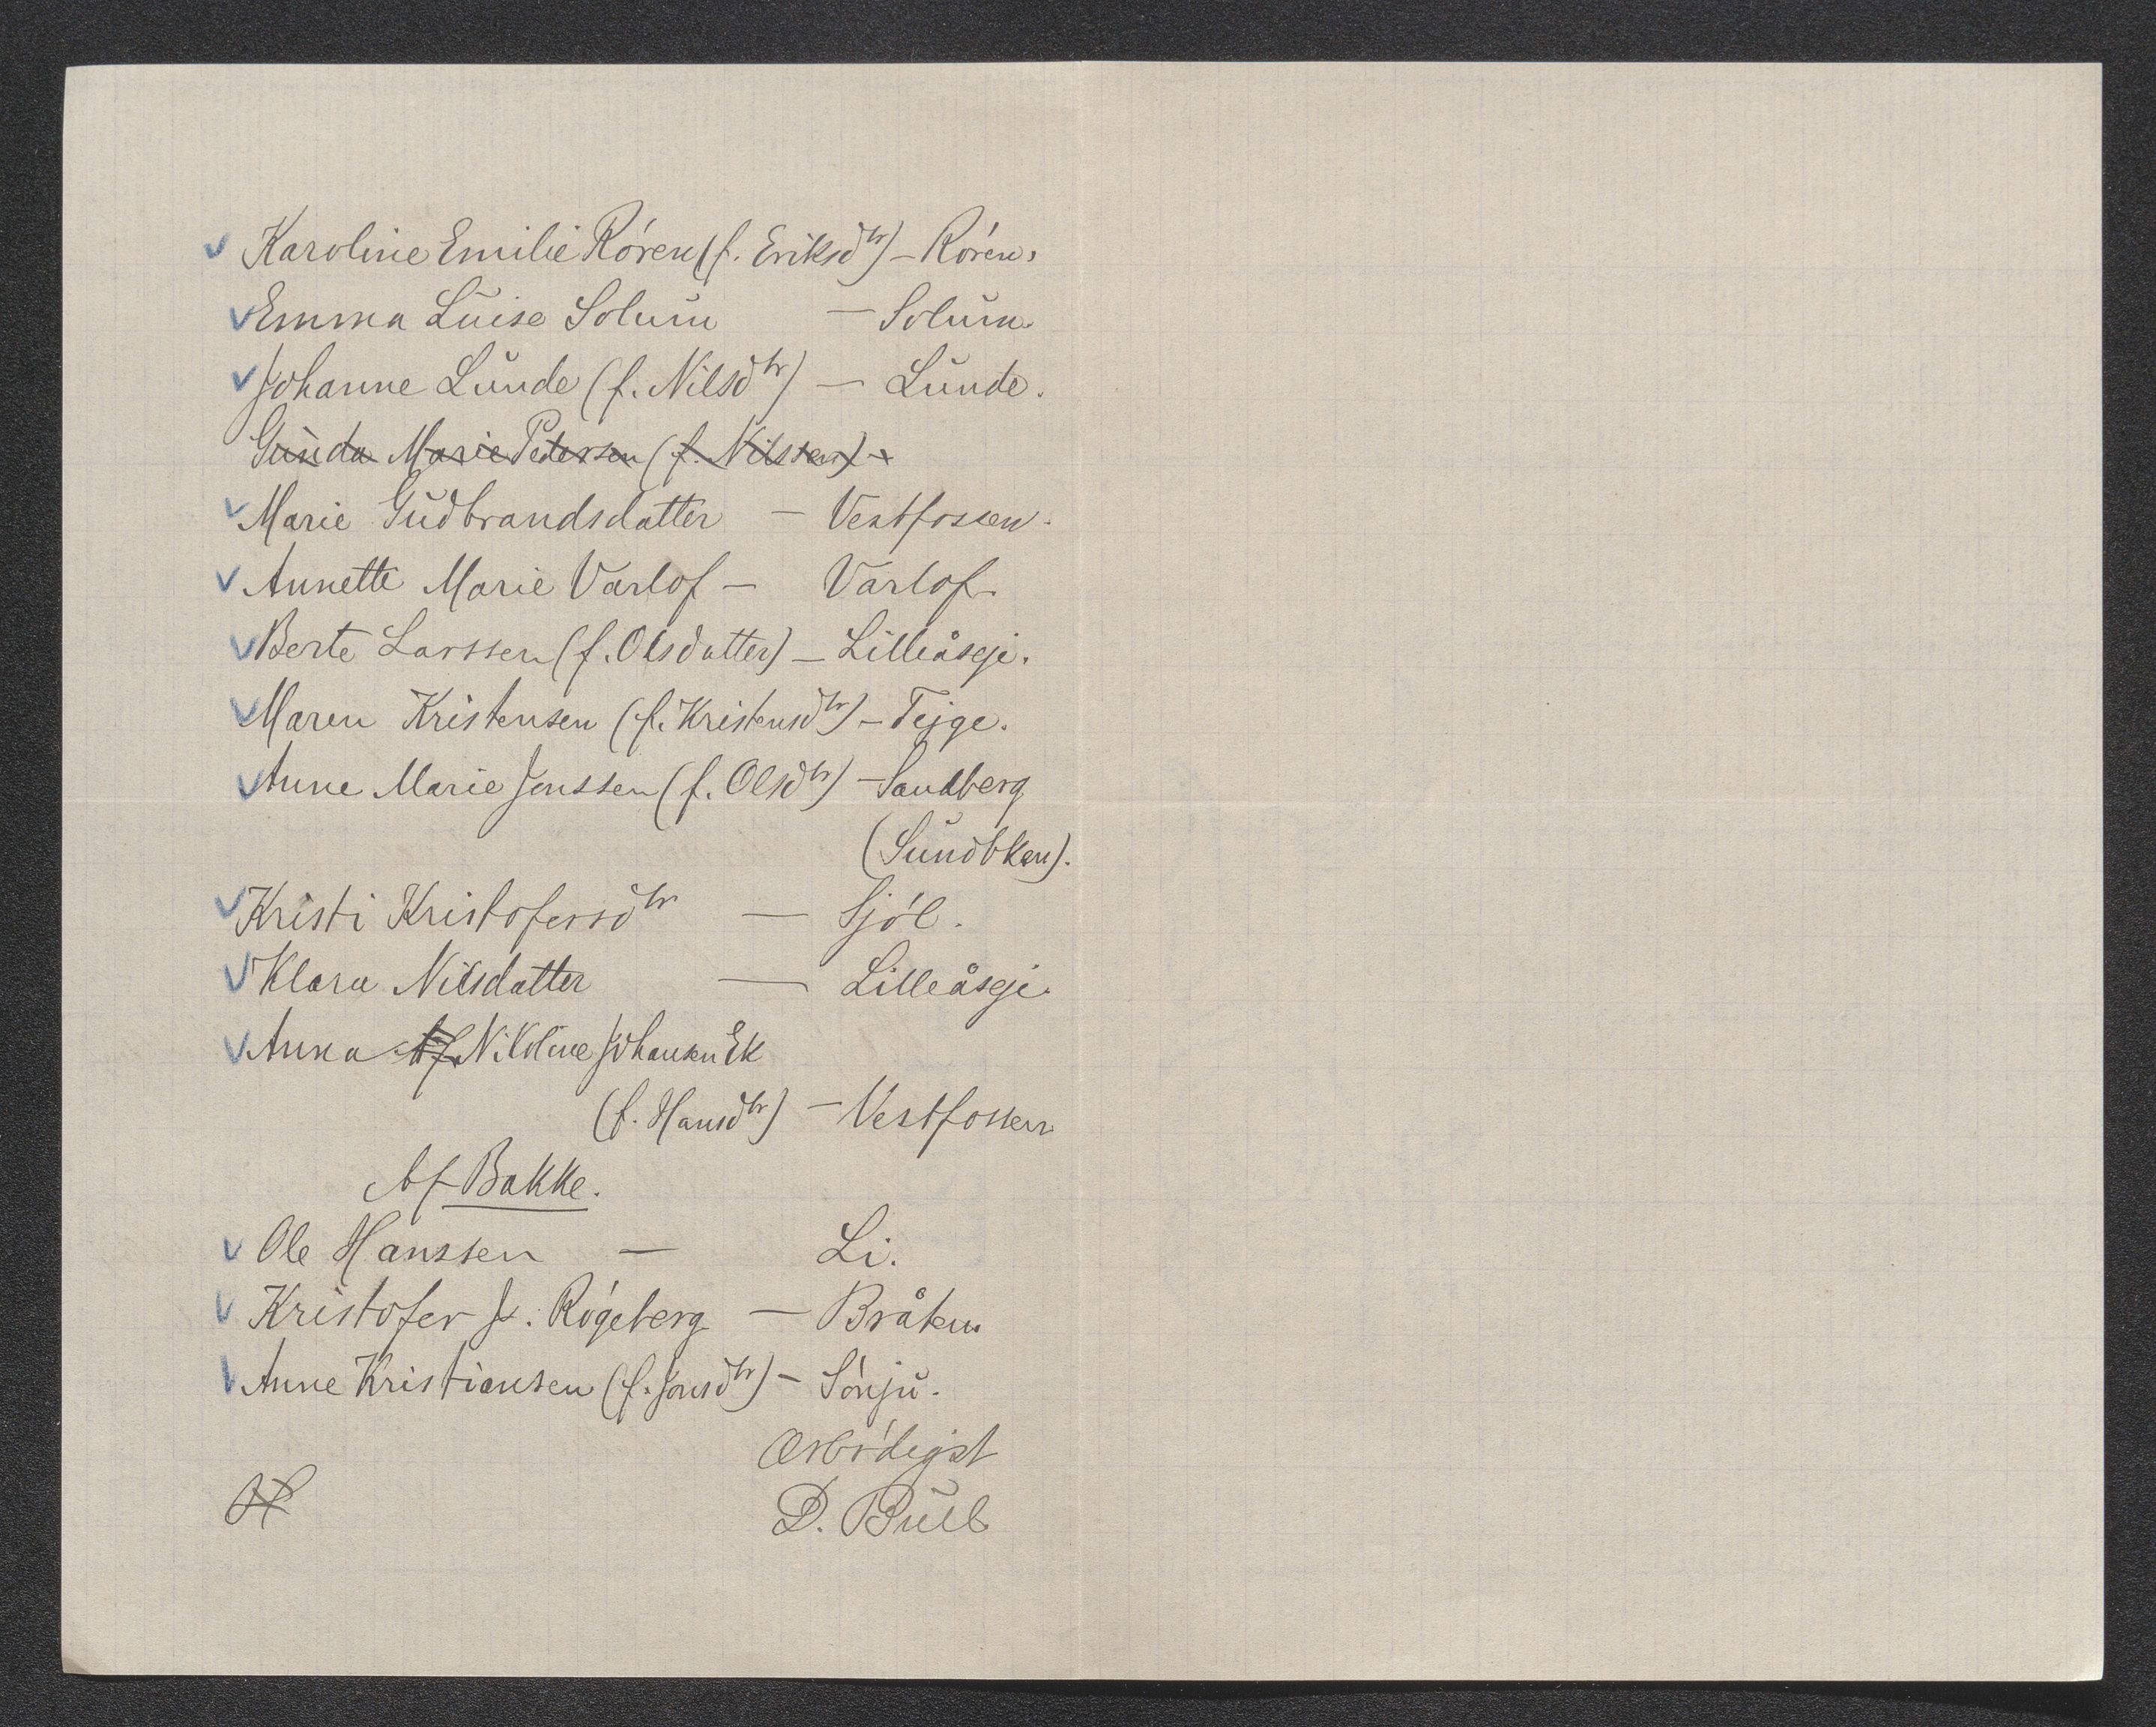 Karoline Emilie Róren (f. Eriksdtr) – Róren.
Emma Luise Solum – Solum.
Johanne Lunde (f. Nilsdtr) – Lunde.
Gunda Marie Petersen (f. Nilssen) –
Marie Gudbrandsdatter – Vestfossen.
Annette Marie Varlof – Varlof.
Berte Larssen (f. Olsdatter) – Lilleåseje.
Maren Kristensen (f. Kristensdtr) – Tejge.
Anne Marie Jonssen (f. Olsdtr) – Sandberg
(Sundbken).
Kristi Kristofersdtr – Sjól.
Klara Nilsdatter – Lilleåseje.
Anna Nikoline Johansen Ek
(f. Hansdtr) – Vestfossen
Af Bakke.
Ole Hanssen – Li.
Kristofer J. Rógeberg – Bråten.
Anne Kristiansen (f. Jonsdtr) – Sónju.
Ærbródigst
D. Bull